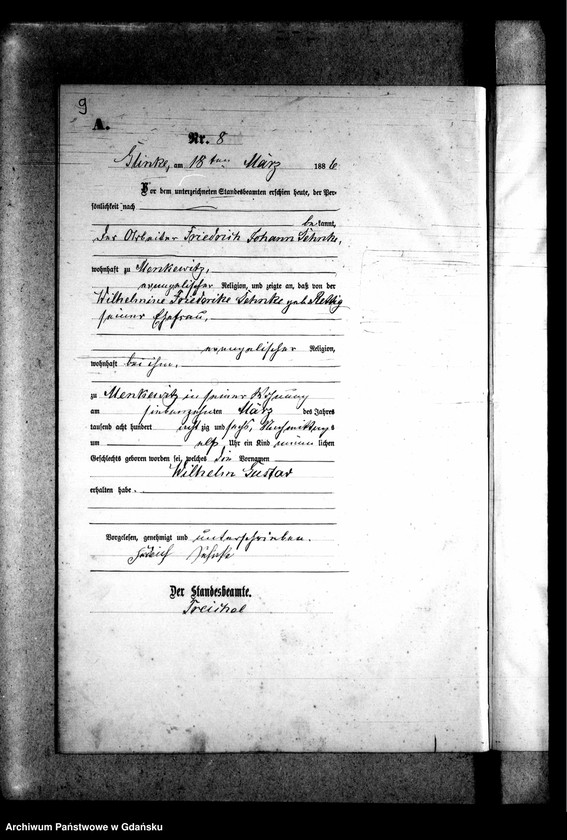 9
A.
Nr. 8
Glinke, am 18 ten März 1886
Vor dem unterzeichneten Standesbeamten erschien heute, der Per-
sönlichkeit nach
bekannt,
der Arbeiter Friedrich Johann
wohnhaft zu Menkewitz,
evangelischer Religion, und zeigte an, daß von der
Wilhelmine Friederike geb.
seiner Ehefrau,
evangelischer Religion,
wohnhaft bei ihm,
zu Menkewitz in seiner Wohnung
am siebenzehnten März des Jahres
tausend acht hundert acht zig und sechs, Nachmittags
um elf Uhr ein Kind männ lichen
Geschlechts geboren worden sei, welches die Vornamen
Wilhelm Gustav
erhalten habe.
Vorgelesen, genehmigt und unterschrieben.
Der Standesbeamte.
Treichel
Archiwum Państwowe w Gdańsku